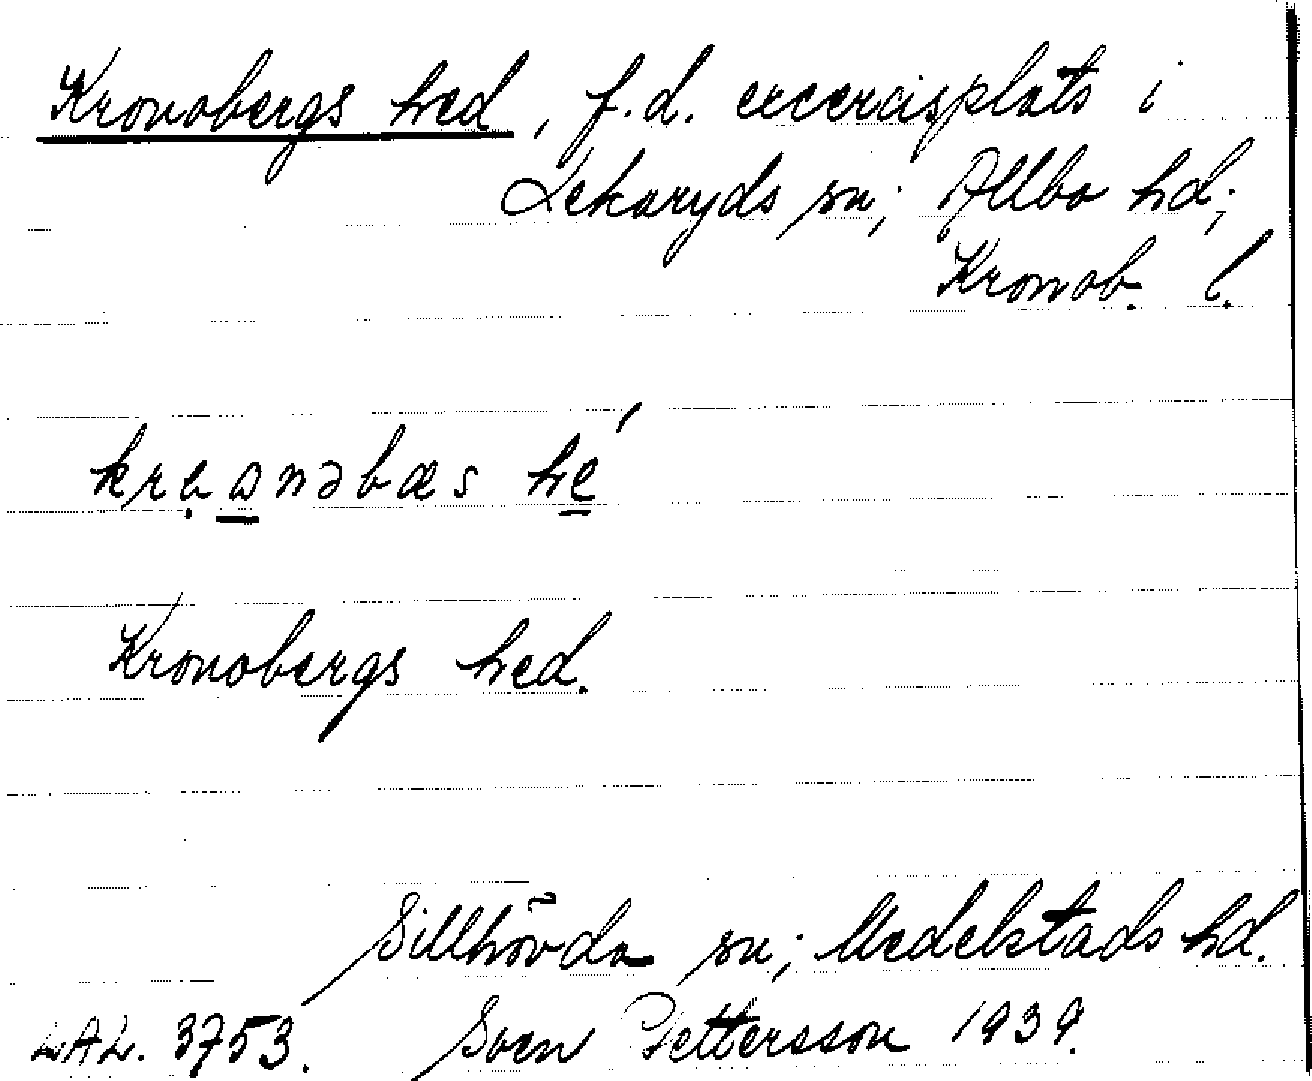 Kronobergs hed, f.d. excercisplats i
Lekaryds sn; Allbo hd;
Kronob. l.
kra̤ɷnəbæs he̱´
Kronobergs hed.
Sillhövda sn; Medelstads hd.
LAL. 3753. Sven Pettersson 1939.